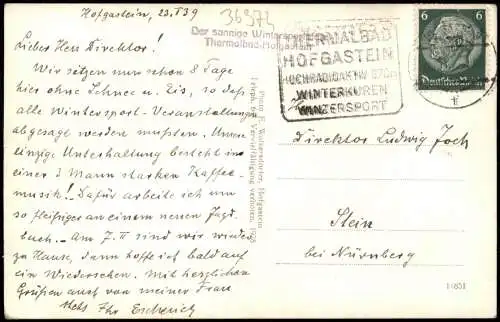 Hofgastein, 23.I 39
36974
Der sonnige Winterspor
Thermalbad Hofgastein
THERMALBAD
HOFGASTEIN
HOCHRADIOAKTIV 870m
WINTERKUREN
WINTERSPORT
6 6
Deutsches Reich
Lieber Herr Direktor!
Wir sitzen nun schon 8 Tage
hier ohne Schnee u. Eis, so daß
alle Wintersport-Veranstaltungen
abgesagt werden mußten. Unsere
einzige Unterhaltung besteht in
einer 3 Mann starken Kaffee-
musik! Dafür arbeite ich um
so fleißiger an einem neuen Jagd-
buch. – Am 7. II sind wir wieder
zu Hause, dann hoffe ich bald auf
ein Wiedersehen. Mit herzlichen
Grüßen auch von meiner Frau
stets Ihr Escherich
Hofgastein
Vervielfältigung verboten. 1938
Direktor Ludwig Joch
Stein
bei Nürnberg
1-851